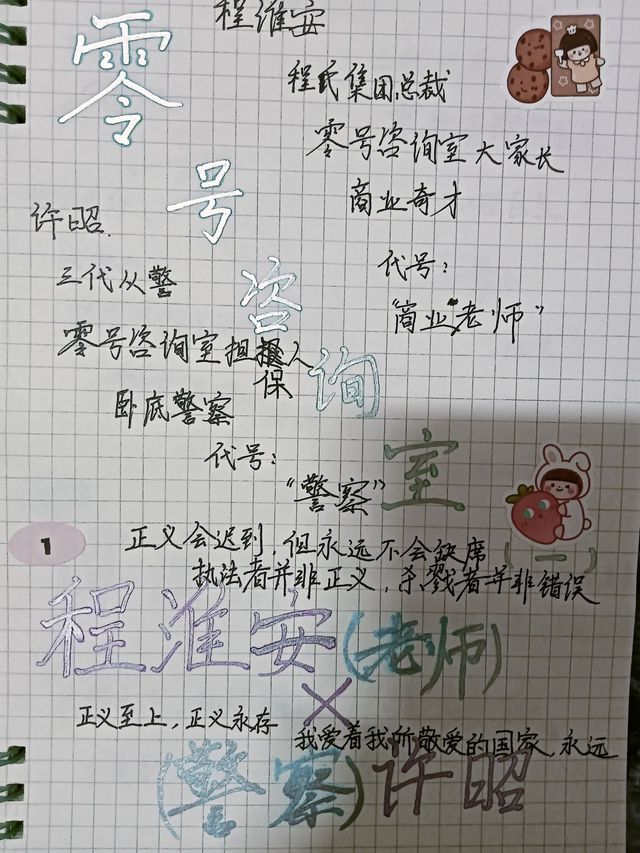 零号咨询室
程淮安
程氏集团总裁
零号咨询室大家长
商业奇才
代号：
“商业”老师”
许昭.
三代从警
零号咨询室担保人
卧底警察
代号：
“警察”
1
正义会迟到，但永远不会缺席
(一)
执法者并非正义，杀戮者并非错误
程淮安(老师)
×
正义至上，正义永存
我爱着我所敬爱的国家，永远
(警察)许昭